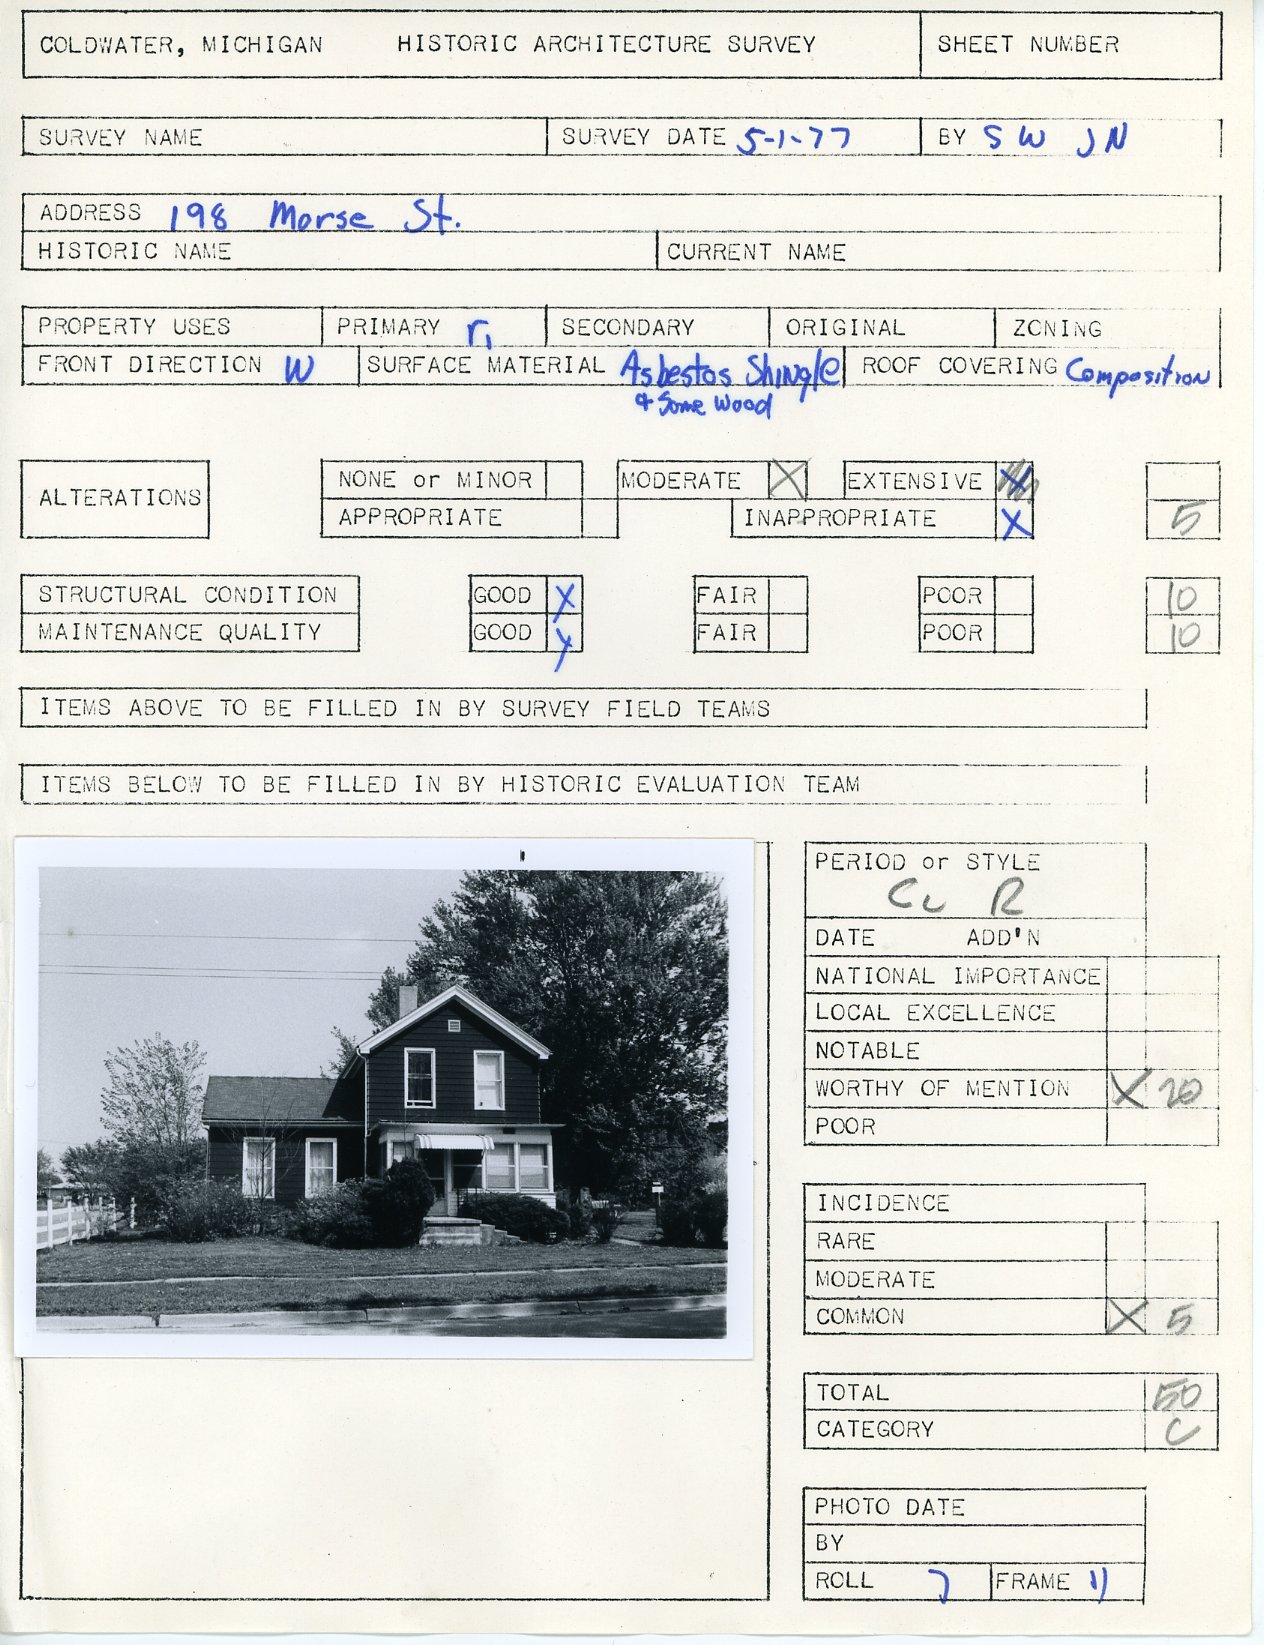 COLDWATER, MICHIGAN HISTORIC ARCHITECTURE SURVEY SHEET NUMBER
SURVEY NAME SURVEY DATE 5-1-77 BY SW JN
ADDRESS 198 Morse St.
HISTORIC NAME CURRENT NAME
PROPERTY USES PRIMARY r, SECONDARY ORIGINAL ZONING
FRONT DIRECTION W SURFACE MATERIAL Asbestos Shingle ROOF COVERING Composition
& Some Wood
NONE or MINOR MODERATE X EXTENSIVE X
ALTERATIONS
APPROPRIATE INAPPROPRIATE X 5
STRUCTURAL CONDITION GOOD X FAIR POOR 10
MAINTENANCE QUALITY GOOD X FAIR POOR 10
ITEMS ABOVE TO BE FILLED IN BY SURVEY FIELD TEAMS
ITEMS BELOW TO BE FILLED IN BY HISTORIC EVALUATION TEAM
PERIOD or STYLE
DATE ADD'N
NATIONAL IMPORTANCE
LOCAL EXCELLENCE
NOTABLE
WORTHY OF MENTION X 20
POOR
INCIDENCE
RARE
MODERATE
COMMON X 5
TOTAL 50
CATEGORY C
PHOTO DATE
BY
ROLL 7 FRAME 11